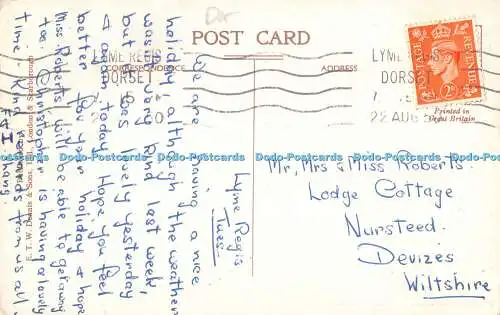 POST CARD
CORRESPONDENCE
ADDRESS
LYME REGIS
DORSET
LYME REGIS
DORSET
22 AUG
POSTAGE
REVENUE
2D
Printed in
Great Britain
E. T. W. Dennis & Sons, Ltd., London & Scarborough
Lyme Regis
Tues.
We are having a nice
holiday although the weather
was very bad last week,
but was lovely yesterday
& again today. Hope you feel
better for your holiday & hope
Miss Roberts will be able to get away
too. Christopher is having a lovely
time. Kind regards from us all
Mr, Mrs & Miss Roberts.
Lodge Cottage
Nursteed.
Devizes
Wiltshire
Dodo Postcards Dodo Postcards Dodo Postcards Dodo Postcards Dodo Postcards Dodo Postcards